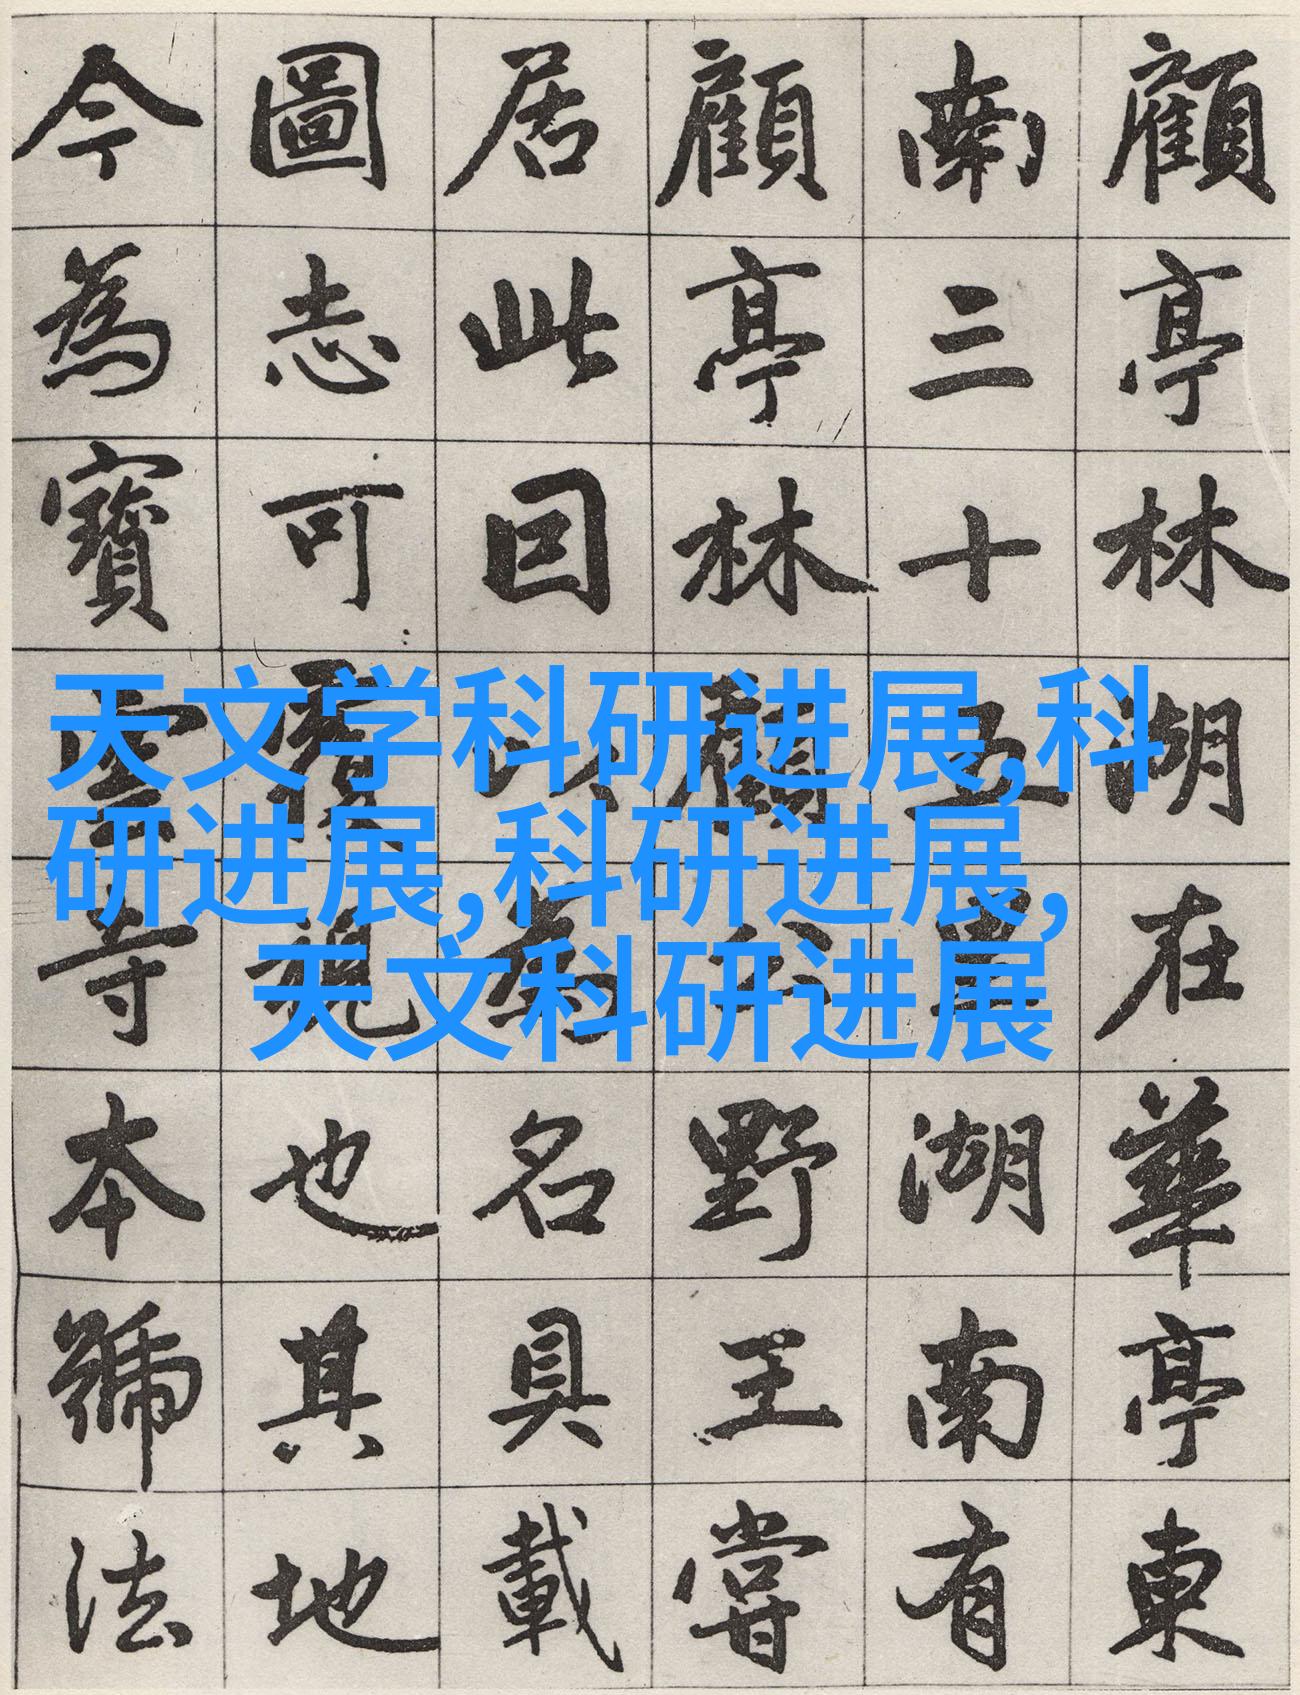 顧亭林湖在華亭東
南三十五里湖南有
顧亭林顧公野王嘗
居此因以為名具載
圖志可覆視也其地
今為寶雲寺本號法
天文学科研进展,科
研进展,科研进展,
天文科研进展